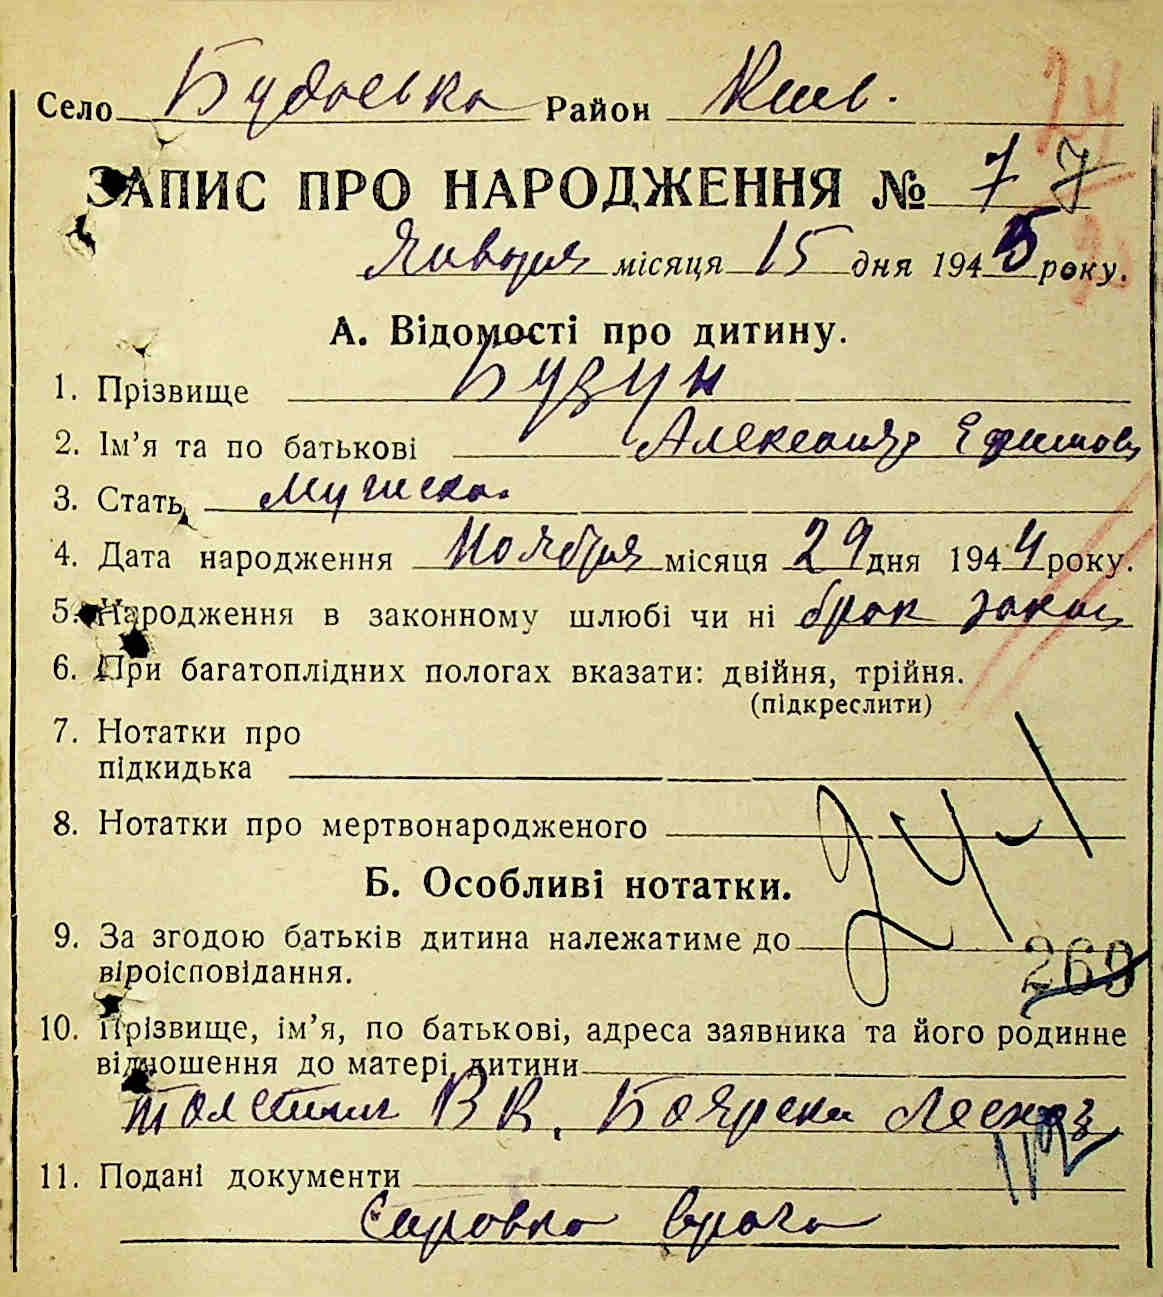 Село Будаевка Район Киев.
24
ЗАПИС ПРО НАРОДЖЕННЯ № 7 7
Января місяця 15 дня 1945 року.
А. Відомості про дитину.
1. Прізвище Бузун
2. Ім’я та по батькові Александр Ефимов
3. Стать Мужска.
4. Дата народження Ноября місяця 29 дня 1944 року.
5. Народження в законному шлюбі чи ні брак закон
6. При багатоплідних пологах вказати: двійня, трійня.
(підкреслити)
7. Нотатки про
підкидька
8. Нотатки про мертвонародженого
241
Б. Особливі нотатки.
9. За згодою батьків дитина належатиме до
віроісповідання.
269
10. Прізвище, ім’я, по батькові, адреса заявника та його родинне
відношення до матері дитини
В К. Боярски Лесхоз
11. Подані документи
Справка врача